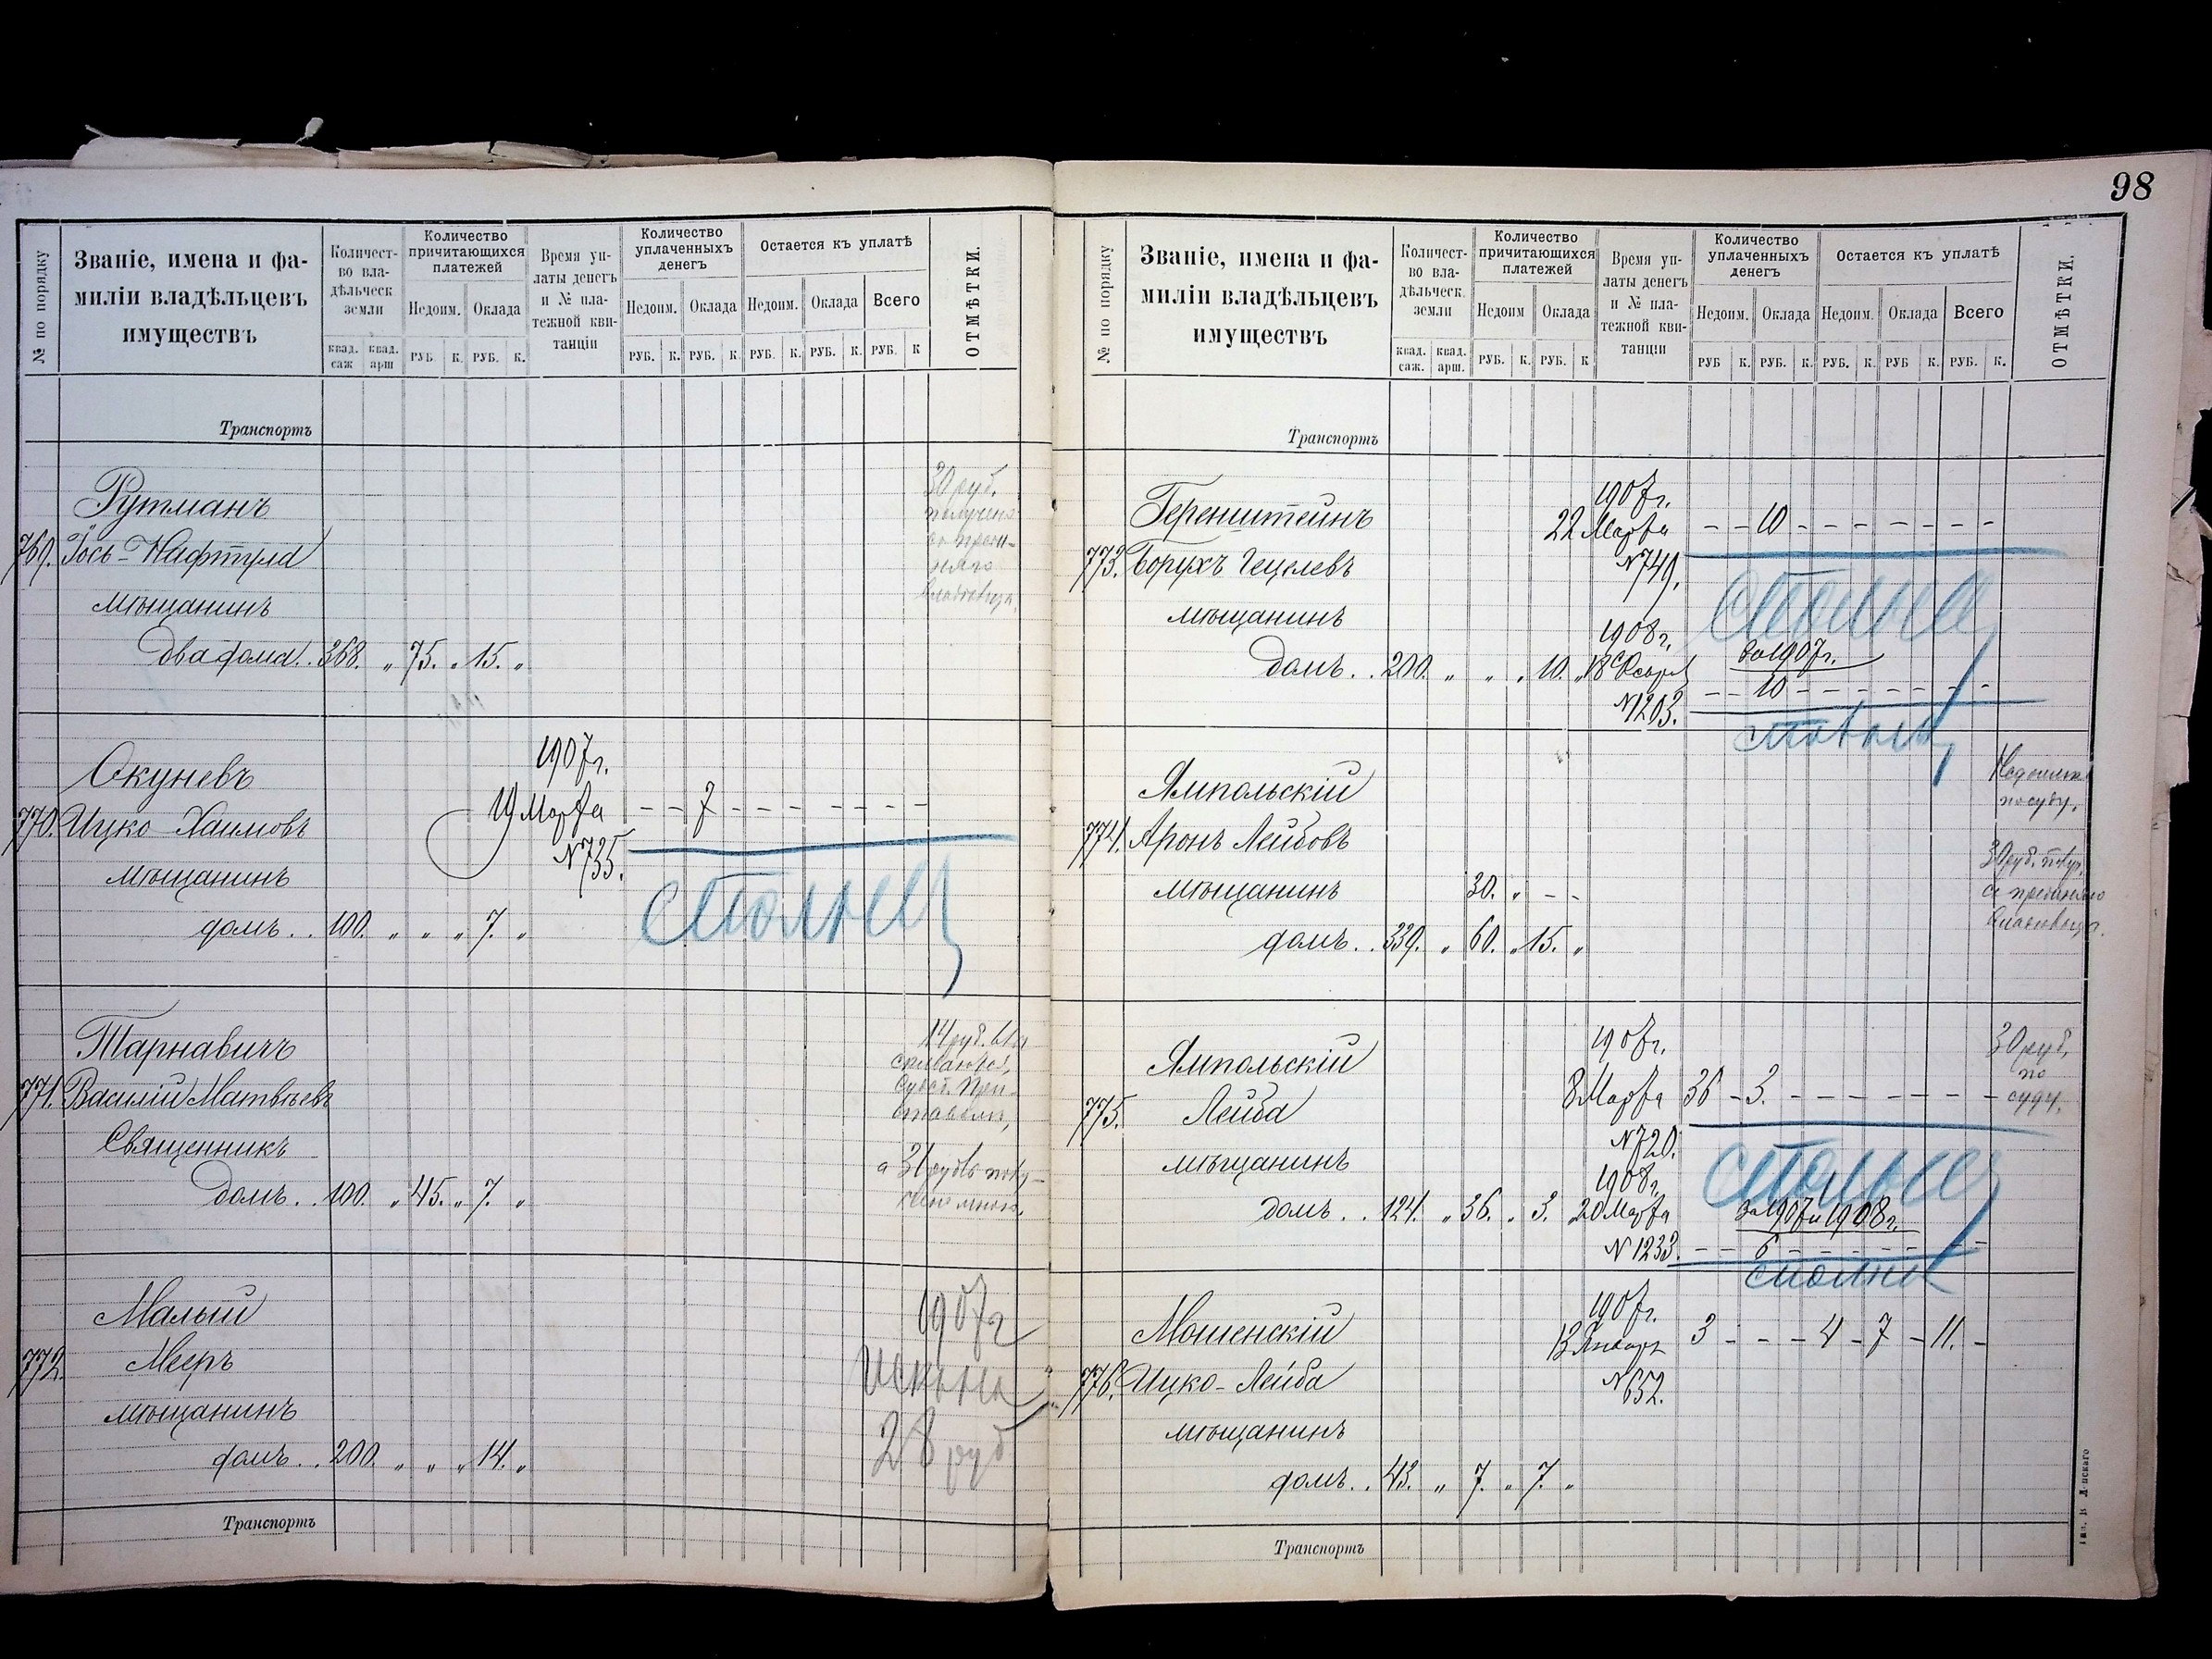 98
№ по порядку
Званіе, имена и фа-
миліи владѣльцевъ
имуществъ
Количест-
во вла-
дѣльческ
земли
квад. саж квад. арш
Количество
причитающихся
платежей
Недоим. Оклада
РУБ. К. РУБ. К.
Время уп-
латы денегъ
и № пла-
тежной кви-
танціи
Количество
уплаченныхъ
денегъ
Недоим. Оклада
РУБ. К. РУБ. К.
Остается къ уплатѣ
Недоим. Оклада Всего
РУБ. К. РУБ. К. РУБ. К
ОТМѢТКИ.
Транспортъ
Рутманъ
769. Іось-Нафтула
мѣщанинъ
два дома. . 368. „ 75. „ 15. „
30 руб.
получено
Окуневъ
1907 г.
19 Марта – – 7 – – – – – –
770. Ицко Хаимовъ
№ 735.
мѣщанинъ
сполна
домъ. . 100. „ „ „ 7. „
Тарнавичъ
771. Василій Матвѣевъ
Священникъ
домъ. . 100. „ 45. „ 7. „
14 руб.
Малый
772. Мееръ
мѣщанинъ
домъ. . 200. „ „ „ 14. „
1907 г
28 руб
Транспортъ
№ по порядку
Званіе, имена и фа-
миліи владѣльцевъ
имуществъ
Количест-
во вла-
дѣльческ.
земли
квад. саж. квад. арш.
Количество
причитающихся
платежей
Недоим Оклада
РУБ. К. РУБ. К
Время уп-
латы денегъ
и № пла-
тежной кви-
танціи
Количество
уплаченныхъ
денегъ
Недоим. Оклада
РУБ К. РУБ. К.
Остается къ уплатѣ
Недоим. Оклада Всего
РУБ. К. РУБ К. РУБ. К.
ОТМѢТКИ.
Транспортъ
Геренштейнъ
1907 г.
22 Марта – – 10 – – – – – –
773. Борухъ Гецелевъ
№ 749.
мѣщанинъ
сполна
1908 г.
за 1907 г.
домъ. . 200. „ „ „ 10. „ 18
№ 1203. – – 10 – – – – – –
Ямпольскій
774. Аронъ Лейбовъ
мѣщанинъ 30. „ – –
домъ. . 339. „ 60. „ 15. „
30 руб.
Ямпольскій
1907 г.
8 Марта 36 – 3. – – – – – –
775. Лейба
№ 720.
мѣщанинъ
сполна
1908 г.
домъ. . 124. „ 36. „ 3. „ 20 Марта
за 1907 и 1908 г.
№ 1233. – – 6 – – – – – –
сполна
30 руб.
по
суду.
Мошенскій
1907 г.
13 Январ 3 – – – 4 – 7 – 11. –
776. Ицко-Лейба
№ 652.
мѣщанинъ
домъ. . 43. „ 7. „ 7. „
Транспортъ